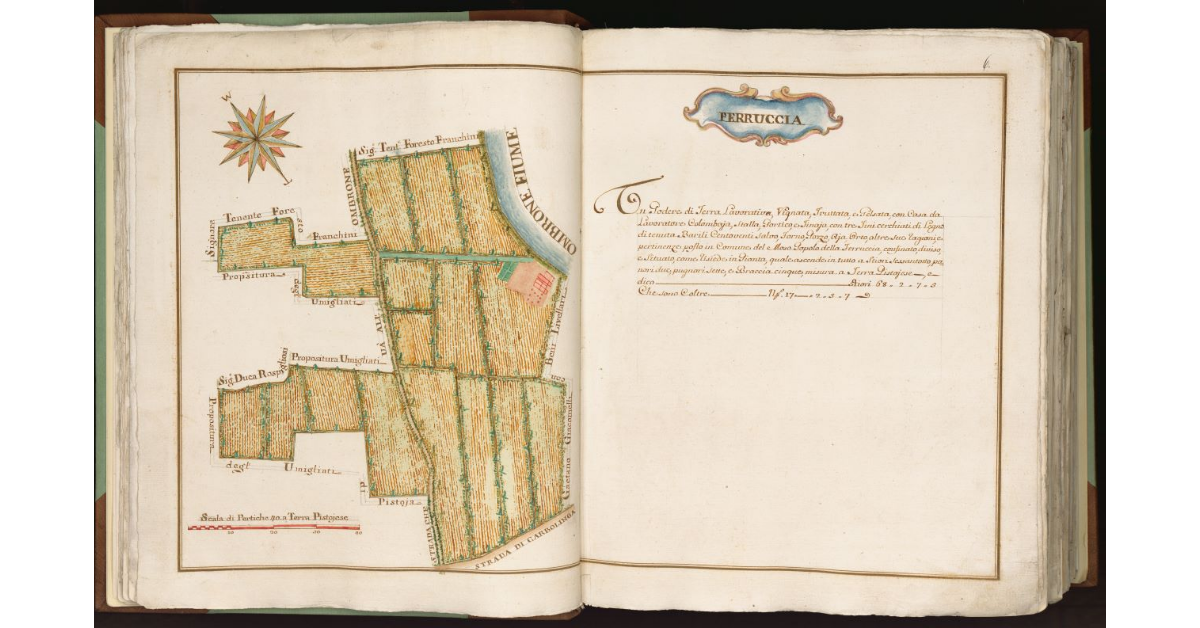 W
Sig. Ten. Foresto Franchini
OMBRONE FIUME
OMBRONE
Tenente Fore
sto
Franchini
Signore
Propositura
degl
Umigliati
VÀ ALL'
Beni Livellari
con
Sig. Duca Rospigliosi
Propositura Umigliati
Propositura
degl
Umigliati
di
Pistoja
Gaetano Giacomelli
STRADA CHE
STRADA DI CARBOLINGA
Scala di Pertiche 90. a Terra Pistojese
6.
FERRUCCIA
Un Podere di Terra Lavorativa, Vignata, Fruttata, e Gelsata, con Casa da
Lavoratore Colombaja, Stalla, Portico, e Tinaja, con tre Tini cerchiati di Legno
di tenuta Barili Centoventi salvo, Forno, Pozzo, Aja, Orto, altre sue ragioni, e
pertinenze posto in Comune del e Popolo della Ferruccia, confinato, diviso,
e Situato, come si vede in Pianta, quale ascende in tutto a Stiori Sessantotto, pa
nori due, pugnori sette, e Braccia cinque, misura a Terra Pistojese, e
dico Stiori 68 - 2 - 7 - 5
Che sono Coltre N.º 17 - 2 - 5 - 7